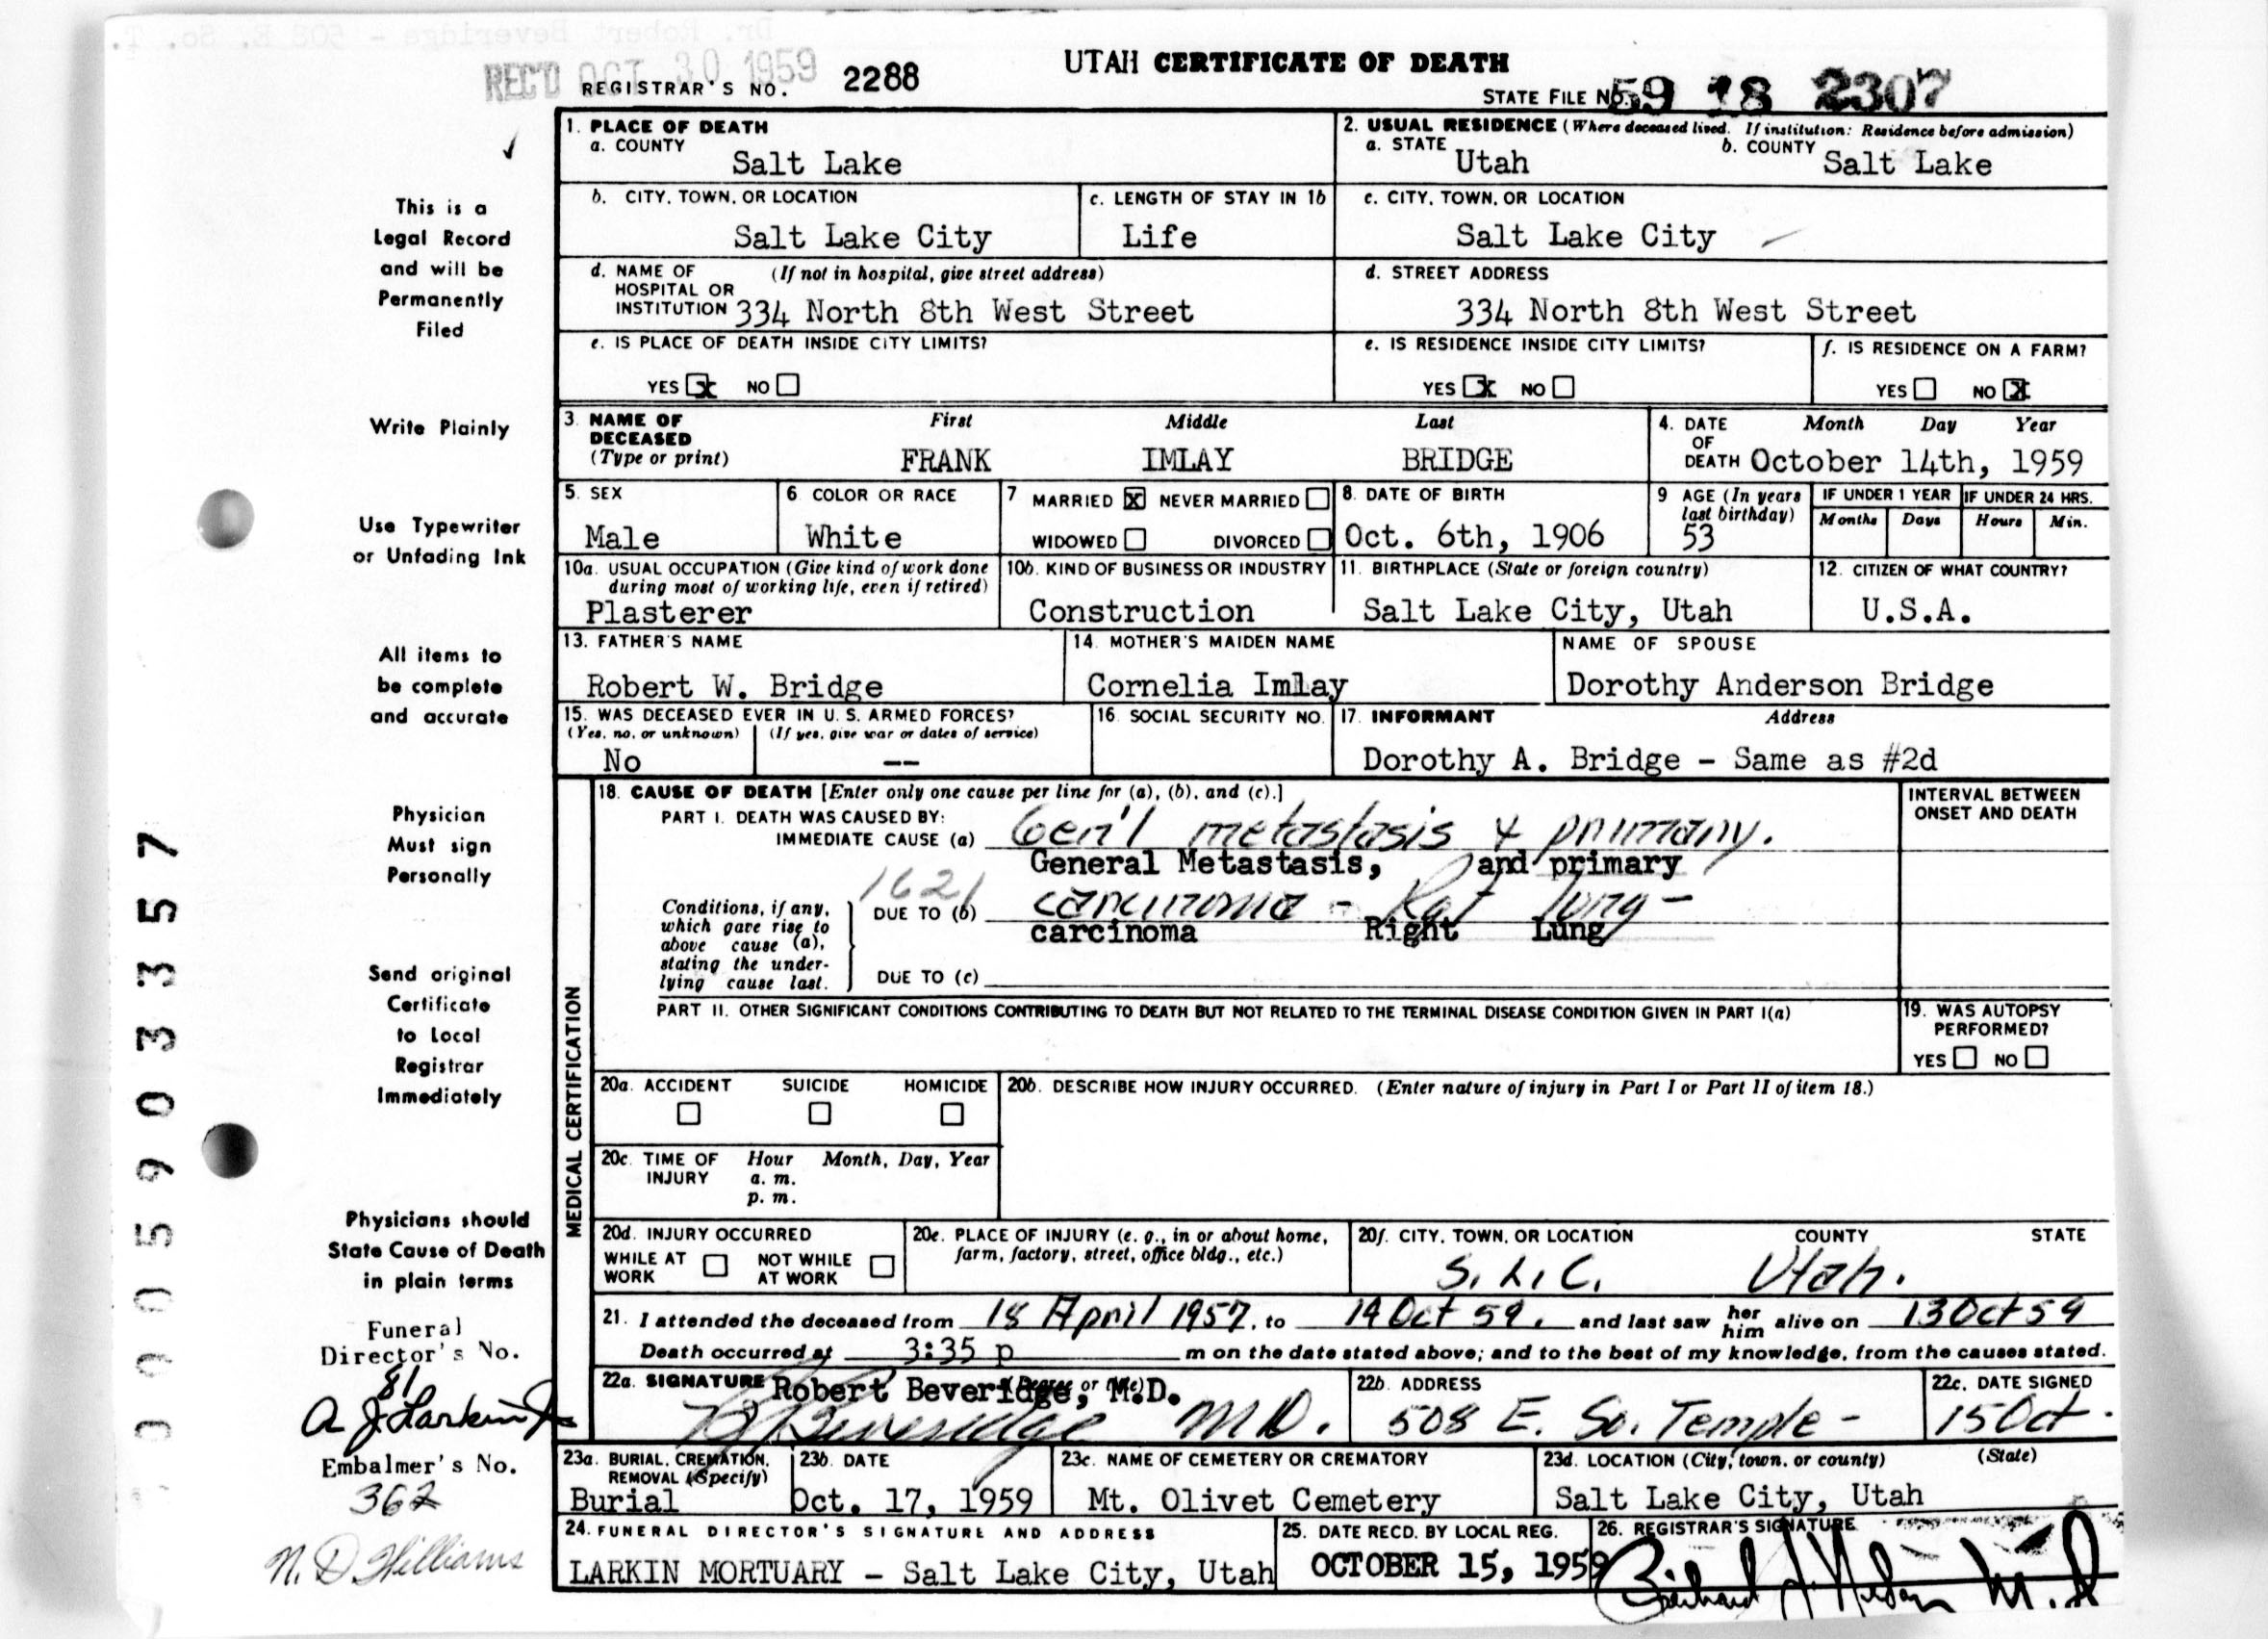 REC'D OCT 30 1959
UTAH CERTIFICATE OF DEATH
REGISTRAR'S NO. 2288
STATE FILE NO. 59 18 2307
1. PLACE OF DEATH
a. COUNTY
Salt Lake
2. USUAL RESIDENCE (Where deceased lived. If institution: Residence before admission)
a. STATE Utah b. COUNTY Salt Lake
b. CITY, TOWN, OR LOCATION
Salt Lake City
c. LENGTH OF STAY IN 1b
Life
c. CITY, TOWN, OR LOCATION
Salt Lake City
d. NAME OF (If not in hospital, give street address)
HOSPITAL OR
INSTITUTION 334 North 8th West Street
d. STREET ADDRESS
334 North 8th West Street
e. IS PLACE OF DEATH INSIDE CITY LIMITS?
YES X NO
e. IS RESIDENCE INSIDE CITY LIMITS?
YES X NO
f. IS RESIDENCE ON A FARM?
YES NO X
3. NAME OF DECEASED (Type or print)
First Middle Last
FRANK IMLAY BRIDGE
4. DATE OF DEATH
Month Day Year
October 14th, 1959
5. SEX
Male
6. COLOR OR RACE
White
7 MARRIED X NEVER MARRIED
WIDOWED DIVORCED
8. DATE OF BIRTH
Oct. 6th, 1906
9 AGE (In years last birthday)
53
IF UNDER 1 YEAR
Months Days
IF UNDER 24 HRS.
Hours Min.
10a. USUAL OCCUPATION (Give kind of work done
during most of working life, even if retired)
Plasterer
10b. KIND OF BUSINESS OR INDUSTRY
Construction
11. BIRTHPLACE (State or foreign country)
Salt Lake City, Utah
12. CITIZEN OF WHAT COUNTRY?
U.S.A.
13. FATHER'S NAME
Robert W. Bridge
14. MOTHER'S MAIDEN NAME
Cornelia Imlay
NAME OF SPOUSE
Dorothy Anderson Bridge
15. WAS DECEASED EVER IN U. S. ARMED FORCES?
(Yes, no, or unknown) (If yes, give war or dates of service)
No --
16. SOCIAL SECURITY NO.
17. INFORMANT Address
Dorothy A. Bridge - Same as #2d
MEDICAL CERTIFICATION
18. CAUSE OF DEATH [Enter only one cause per line for (a), (b), and (c).]
INTERVAL BETWEEN
ONSET AND DEATH
PART I. DEATH WAS CAUSED BY:
IMMEDIATE CAUSE (a) Gen'l metastasis & primary.
General Metastasis, and primary
1621
Conditions, if any,
which gave rise to
above cause (a),
stating the under-
lying cause last.
DUE TO (b) carcinoma - Rgt lung -
carcinoma Right Lung
DUE TO (c)
PART II. OTHER SIGNIFICANT CONDITIONS CONTRIBUTING TO DEATH BUT NOT RELATED TO THE TERMINAL DISEASE CONDITION GIVEN IN PART I(a)
19. WAS AUTOPSY
PERFORMED?
YES NO
20a. ACCIDENT SUICIDE HOMICIDE
20b. DESCRIBE HOW INJURY OCCURRED. (Enter nature of injury in Part I or Part II of item 18.)
20c. TIME OF INJURY
Hour Month, Day, Year
a. m.
p. m.
20d. INJURY OCCURRED
WHILE AT WORK NOT WHILE AT WORK
20e. PLACE OF INJURY (e. g., in or about home,
farm, factory, street, office bldg., etc.)
20f. CITY, TOWN, OR LOCATION COUNTY STATE
S. L. C. Utah.
21. I attended the deceased from 18 April 1957, to 14 Oct 59. and last saw her him alive on 13 Oct 59
Death occurred at 3:35 p m on the date stated above; and to the best of my knowledge, from the causes stated.
22a. SIGNATURE (Degree or title)
Robert Beveridge, M.D.
Beveridge M.D.
22b. ADDRESS
508 E. So. Temple -
22c. DATE SIGNED
15 Oct.
23a. BURIAL, CREMATION,
REMOVAL (Specify)
Burial
23b. DATE
Oct. 17, 1959
23c. NAME OF CEMETERY OR CREMATORY
Mt. Olivet Cemetery
23d. LOCATION (City, town, or county) (State)
Salt Lake City, Utah
24. FUNERAL DIRECTOR'S SIGNATURE AND ADDRESS
LARKIN MORTUARY - Salt Lake City, Utah
25. DATE RECD. BY LOCAL REG.
OCTOBER 15, 1959
26. REGISTRAR'S SIGNATURE
M.D.
This is a
Legal Record
and will be
Permanently
Filed
Write Plainly
Use Typewriter
or Unfading Ink
All items to
be complete
and accurate
Physician
Must sign
Personally
Send original
Certificate
to Local
Registrar
Immediately
Physicians should
State Cause of Death
in plain terms
Funeral
Director's No.
81
A J Larkin Jr
Embalmer's No.
362
N. D Williams
0005903357